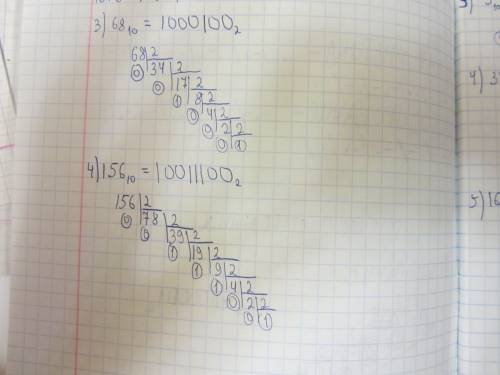 3) 68₁₀ = 1000100₂
68 2
0 34 2
0 17 2
1 8 2
0 4 2
0 2 2
0 1
4) 156₁₀ = 10011100₂
156 2
0 78 2
0 39 2
1 19 2
1 9 2
1 4 2
0 2 2
0 1
4) 3
5) 16